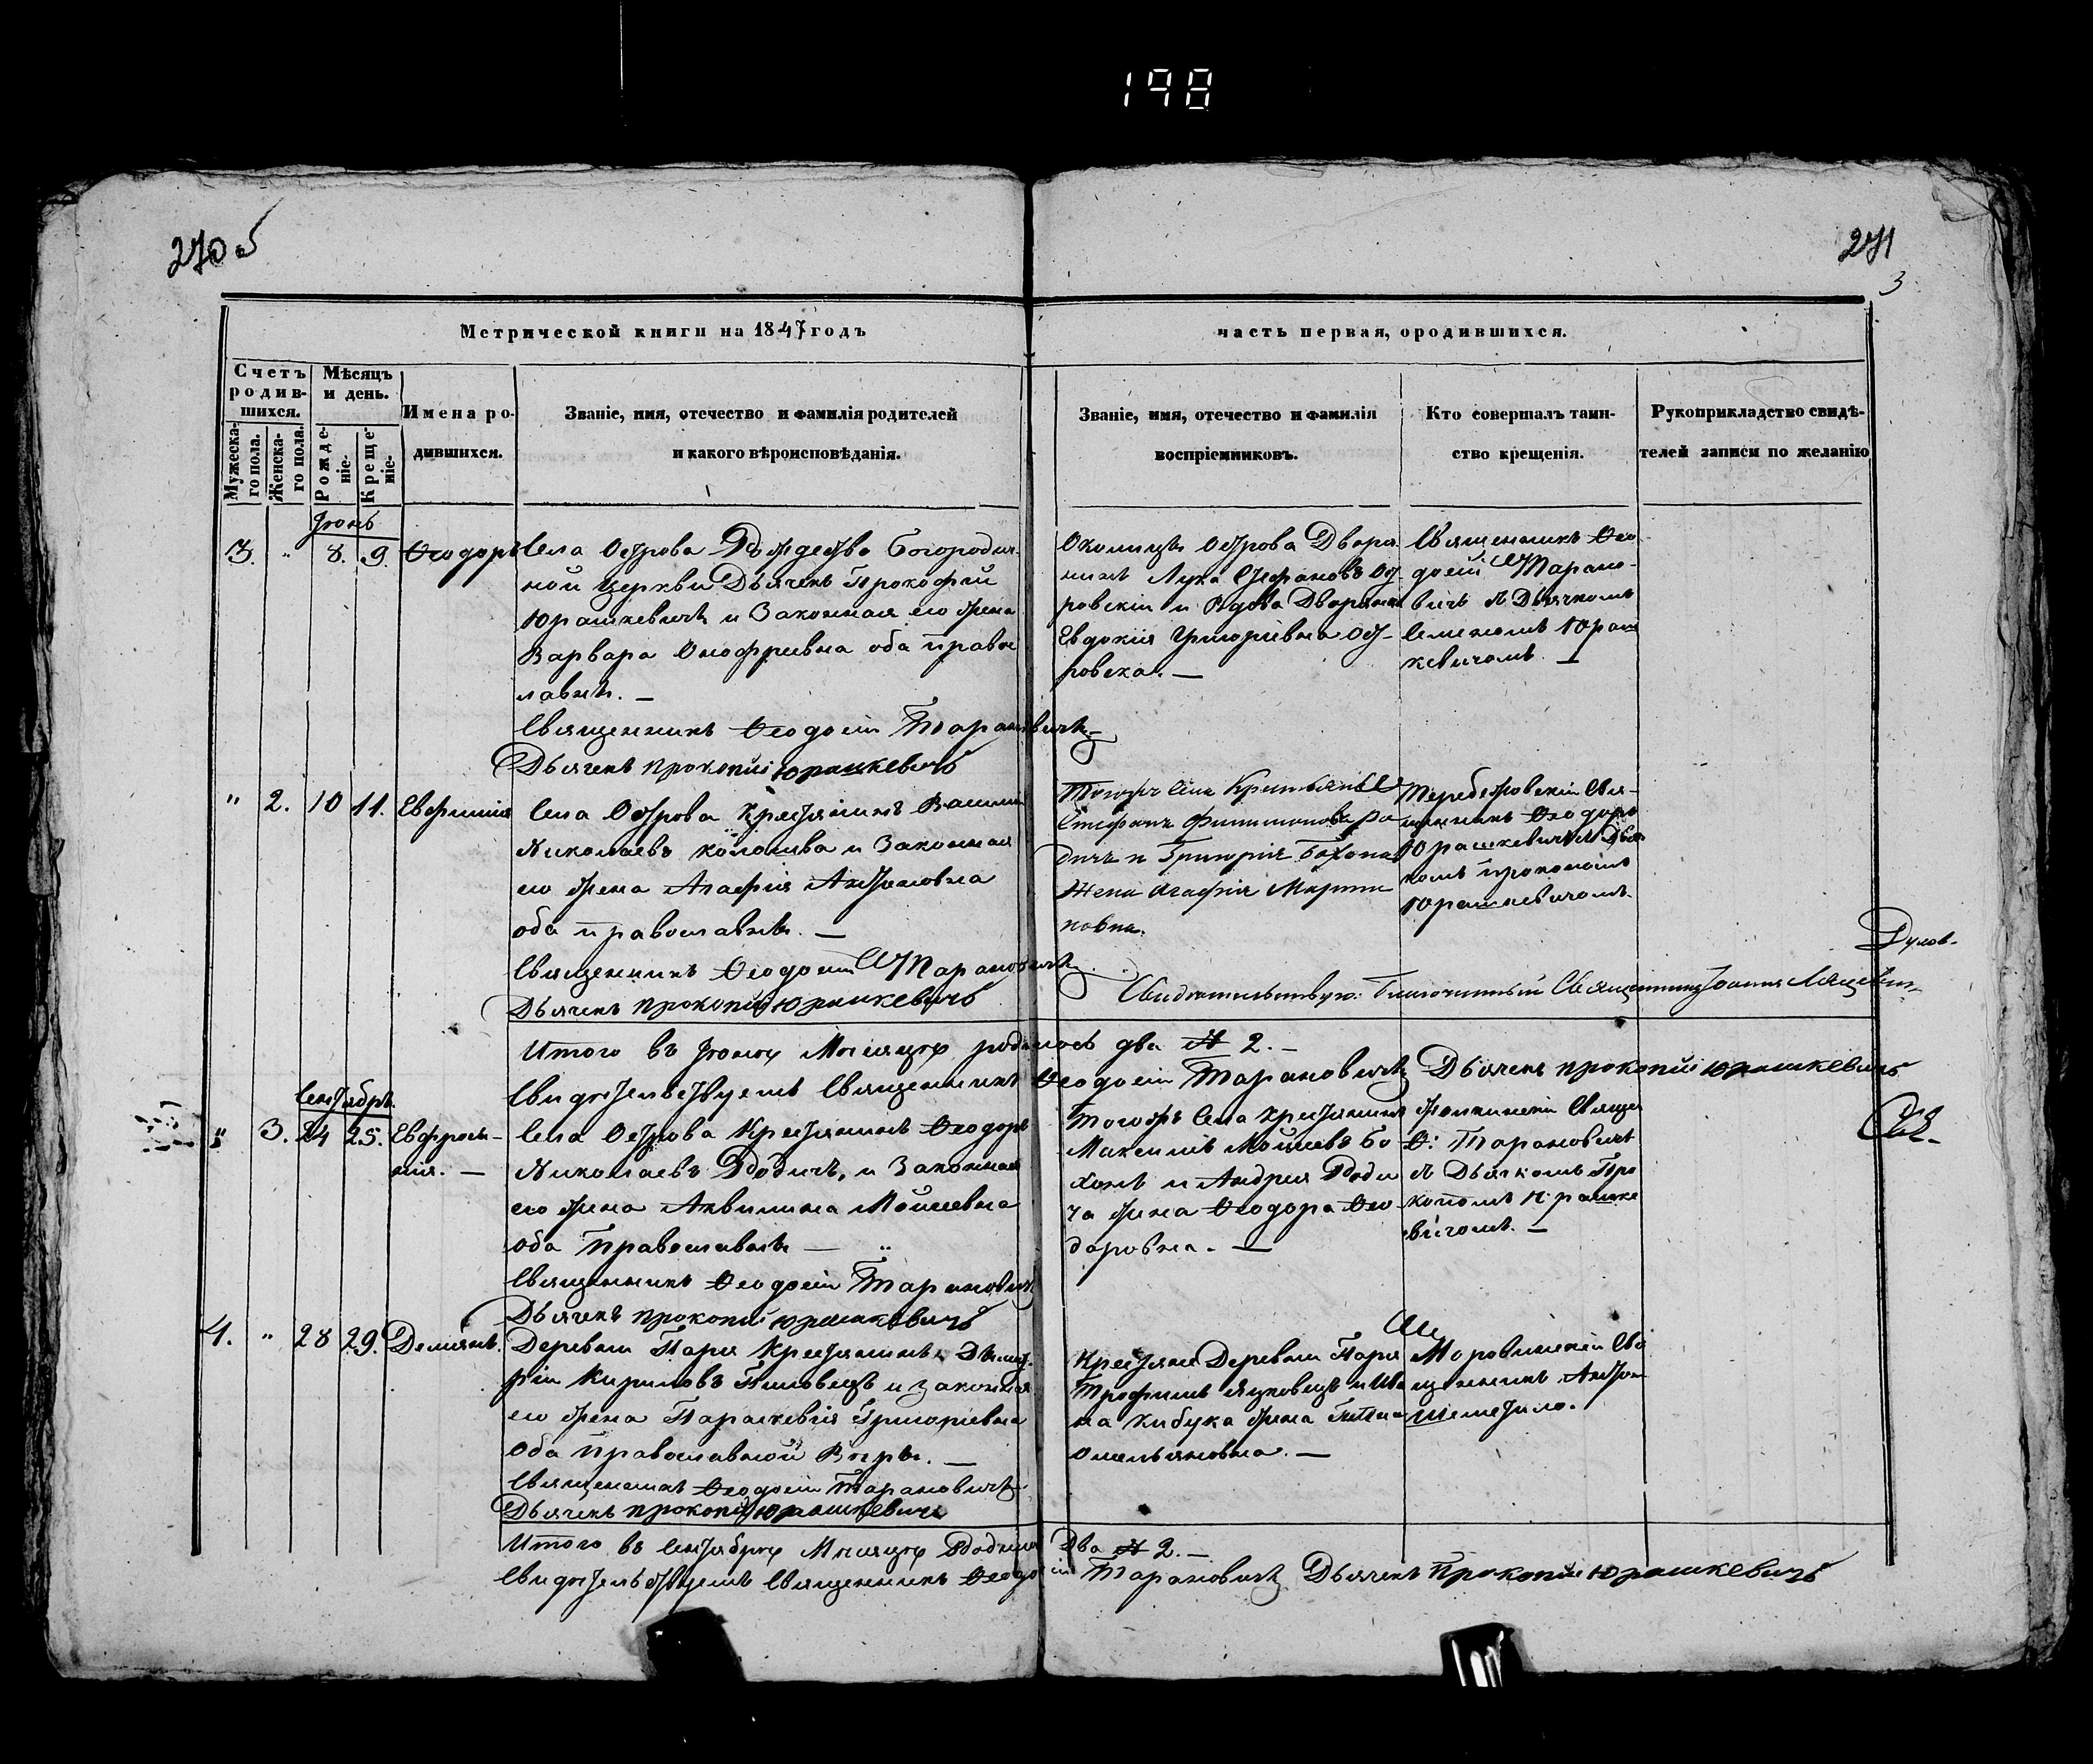 198
270 об
271
3
Метрической книги на 1847 годъ
часть первая, ородившихся.
Счетъ родив-
шихся.
Мужеска-
го пола.
Женска-
го пола.
Мѣсяцъ
и день.
Рожде-
ніе-
Креще-
ніе-
Имена ро-
дившихся.
Званіе, имя, отечество и фамилія родителей
и какого вѣроисповѣданія.
Званіе, имя, отечество и фамилія
воспріемниковъ.
Кто совершалъ таин-
ство крещенія.
Рукоприкладство свидѣ-
телей записи по желанію
Іюнь
3. " 8. 9. Ѳеодоръ
Села Острова Рождество Богородич-
ной церкви Дьячекъ Прокофій
Юрашкевичъ и Законная его жена
Варвара Онофріевна оба правос
лавны. —
Священникъ Ѳеодосій Тарановичъ
Дьячекъ Прокопій Юрашкевичъ
Околицы Острова Дворя
нинъ Лука Стефановъ Ост
ровскій и Вдова Дворянка
Евдокія Григоріевна Ост-
ровска. —
Священникъ Ѳео
досій Тарано-
вичъ съ Дьячкомъ
Семеномъ Юраш
кевичомъ. —
" 2. 10 11. Евфимія
Села Острова Крестьянинъ Василій
Николаевъ и Законная
его жена Агафія Антоновна
оба православны. —
Священникъ Ѳеодосій Тарановичъ
Дьячекъ Прокопій Юрашкевичъ
Тогожъ Села Крестьянинъ
Стефанъ Филимоновъ Ро
дичъ и Григорія Бохона
Жена Агафія Марти
новна.
Теребежовскій Свя-
щенникъ Ѳеодоръ
Юрашкевичъ съ Дья
комъ Прокопіемъ
Юрашкевичомъ.
Свидѣтельствую: Благочинный Священникъ Іоаннъ
Итого въ Іюнѣ Мѣсяцѣ родилось два 2. —
Свидѣтельствуемъ Священникъ Ѳеодосій Тарановичъ Дьячекъ Прокопій Юрашкевичъ
Сентябрь.
" 3. 24 25. Евфроси-
нія. —
Села Острова Крестьянинъ Ѳеодоръ
Николаевъ Родичъ, и Законная
его жена Аквилина Мойсеевна
оба Православны —
Священникъ Ѳеодосій Тарановичъ
Дьячекъ Прокопій Юрашкевичъ
Тогожъ Села Крестьянинъ
Максимъ Мойсеевъ Бо
хонъ и Андрея Роди
ча жена Ѳеодора Ѳео
доровна. —
Свяще
Ѳ: Тарановичъ
съ Дьячкомъ Про
копомъ Юрашке
вичомъ. —
4. " 28 29. Деміянъ.
Деревни Паря Крестьянинъ Дмит-
рій Кириловъ и законная
его жена Параскевія Григоріевна
Оба Православной Вѣры. —
Священникъ Ѳеодосій Тарановичъ
Дьячекъ Прокопій Юрашкевичъ
Крестьяне Деревни Паря
Трофимъ Яцковецъ и Ива
на Кибука жена
Омельяновна. —
Моровинскій Свя
щенникъ Антон
Шеметило.
Итого въ Сентябрѣ Мѣсяцѣ Родилось Два 2. —
Свидѣтельствуемъ Священникъ Ѳеодосій Тарановичъ Дьячекъ Прокопій Юрашкевичъ